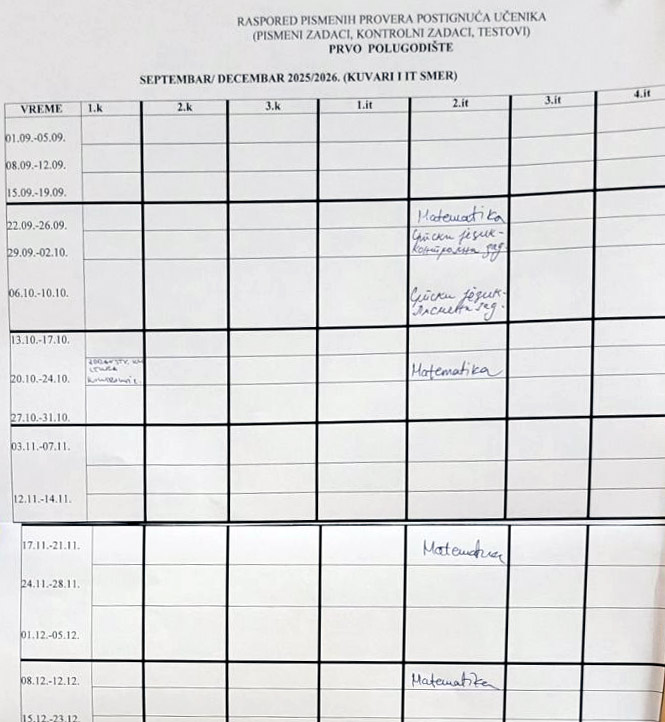 RASPORED PISMENIH PROVERA POSTIGNUĆA UČENIKA
(PISMENI ZADACI, KONTROLNI ZADACI, TESTOVI)
PRVO POLUGODIŠTE
SEPTEMBAR/ DECEMBAR 2025/2026. (KUVARI I IT SMER)
VREME 1.k 2.k 3.k 1.it 2.it 3.it 4.it
01.09.-05.09.
08.09.-12.09.
15.09.-19.09.
22.09.-26.09. Matematika
29.09.-02.10. Српски језик-
контролни зад.
06.10.-10.10. Српски језик-
писмени зад.
13.10.-17.10.
20.10.-24.10. Matematika
27.10.-31.10.
03.11.-07.11.
12.11.-14.11.
17.11.-21.11. Matematika
24.11.-28.11.
01.12.-05.12.
08.12.-12.12. Matematika
15.12.-23.12.